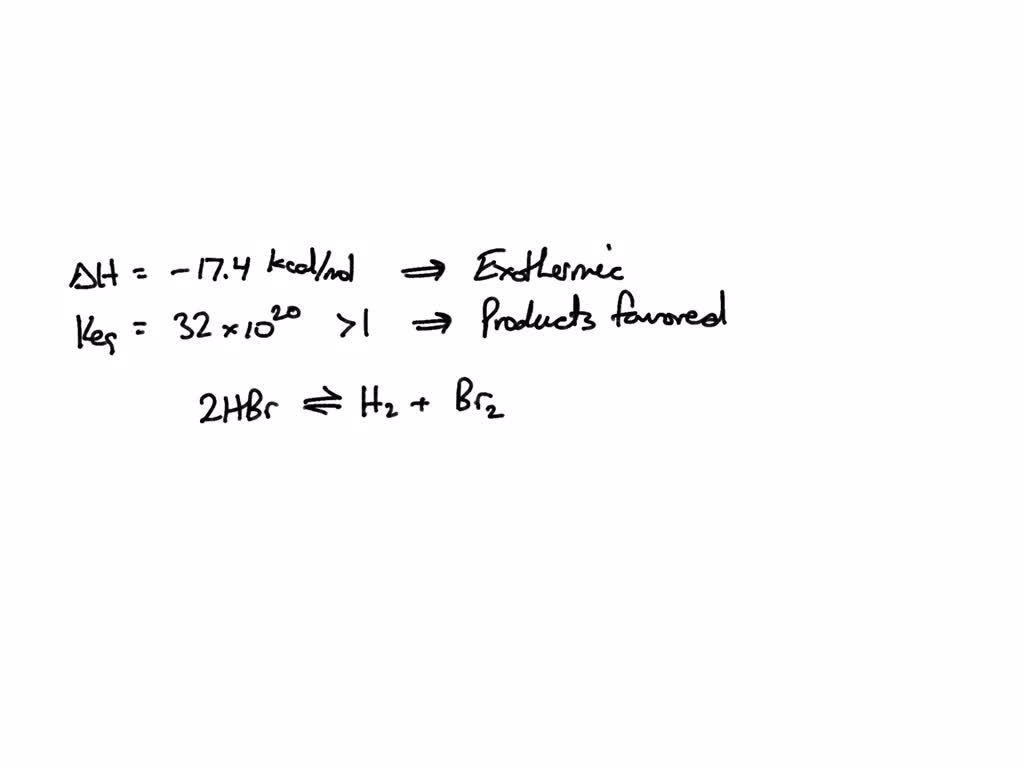 ΔH = -17.4 kcal/mol ⇒ Exothermic
Keq = 32 × 10²⁰ >1 ⇒ Products favored
2HBr ⇌ H₂ + Br₂